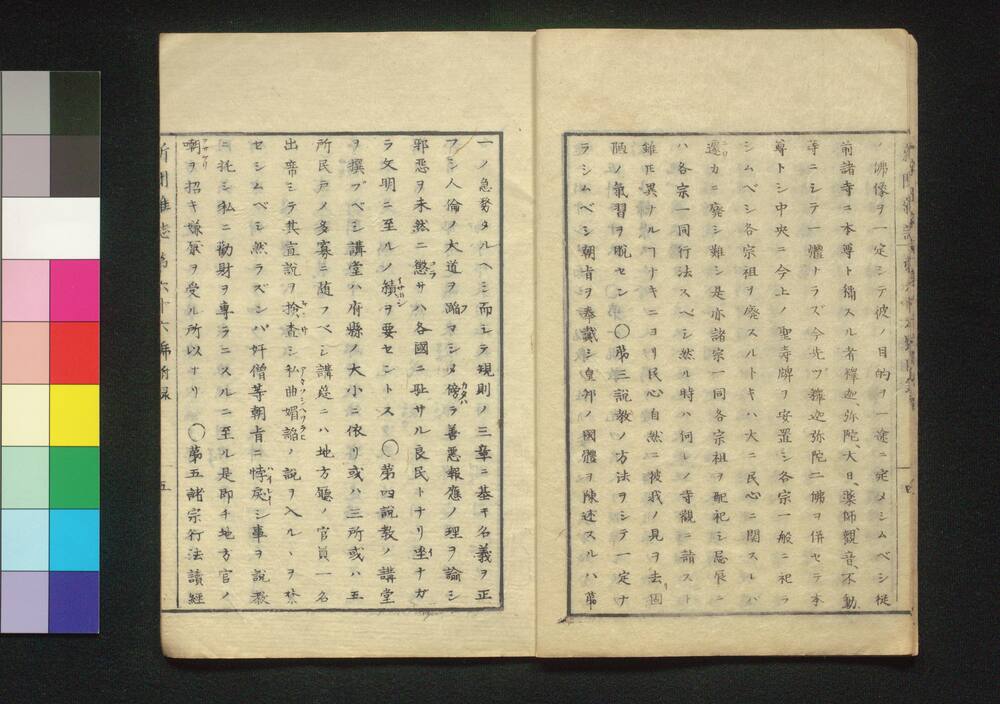 ノ佛像ヲ一定シテ彼ノ目的ヲ一途ニ定メシムベシ從
前諸寺ニ本尊ト稱スル者釋迦、弥陀、大日、藥師、觀音、不動
等ニシテ一軆トラズ今先ヅ釋迦弥陀二佛ヲ併セテ本
尊トシ中央ニ今上ノ聖壽牌ヲ安置シ各宗一般ニ祀ラ
シムベシ各宗祖ヲ廢スルトキハ大ニ民心ニ関スレバ
遽カニ廢シ難シ是亦諸宗一同各宗祖ヲ配祀シ忌辰ニ
ハ各宗一同行法スベシ然ル時ハ何レノ寺觀ニ詣スト
雖𪜈異ナルヿナキニヨリ民心自然ニ彼我ノ見ヲ去リ固
陋ノ氣習ヲ脱セン〇第三説教ノ方法ヲシテ一定ナ
ラシムベシ朝旨ヲ奉戴シ皇邦ノ國體ヲ陳述スルハ第
一ノ急務タルヘシ而シテ規則ノ三章ニ基キ名義ヲ正
フシ人倫ノ大道ヲ蹈マシメ傍ラ善悪報應ノ理ヲ論シ
邪惡ヲ未然ニ懲サハ各國ニ耻サル良民トナリ坐ナガ
ラ文明ニ至ルノ績ヲ要セントス〇第四説教ノ講堂
ヲ撰ブベシ講堂ハ府縣ノ大小ニ依リ或ハ三所或ハ五
所民戸ノ多寡ニ随フベシ講莚ニハ地方廳ノ官員一名
出席シテ其宣説ヲ撿査シ私曲媚諂ノ説ヲ入ルヽヲ禁
セシムベシ然ラズンバ奸僧等朝旨ニ悖戻シ事ヲ説教
ニ托シ私ニ勸財ヲ專ラニスルニ至ル是即チ地方官ノ
嘲ヲ招キ嫌疑ヲ受ル所以ナリ〇第五諸宗行法讀經
新聞雜誌第六十六號附録
五